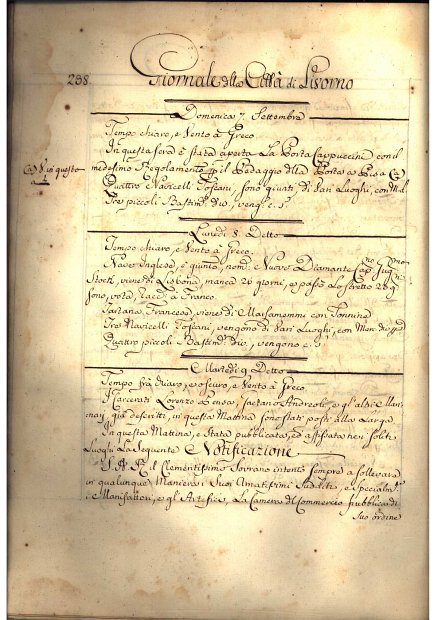 238
Giornale della Città di Livorno
Domenica 7. Settembre
Tempo chiaro, e Vento à Greco
In questa sera è stata aperta La Porta Cappuccina con il
medesimo Regolamento p il Pedaggio della Porta a Pisa
Quattro Navicelli Toscani, sono giunti, di Vari Luoghi, con
Tre piccoli Bastim.ti div., veng.o c. s.a
Lunedì 8. Detto
Tempo chiaro, e Vento à Greco.
Nave Inglese, è quinto, nom. e Nuovo Diamante, Cap.no
viene di Lisbona, manca 26 giorni, e passò Lo stretto
sono, vota, racc. a Franco
Tartana Francese, viene di con Tonnina
Tre Navicelli Toscani, vengono di Vari Luoghi, con Mer. div.
Quattro piccoli Bastim.ti div., vengono c. s.a
Martedì 9 Detto
Tempo frà chiaro, e oscuro, e Vento à Greco
I Carcerati Lorenzo Gaetano Andreoli, e gl'altri
già descritti, in questa Mattina sono stati posti alla Larga
In questa Mattina, è Stata pubblicata, ed affissata ne i soliti
Luoghi La Seguente Notificazione
S. A. R. il Clementissimo Sovrano intento sempre a sollevare
in qualunque Maniera i Suoi Amatissimi Sudditi, e Specialm.e
i Manifattori, e gl'Artefici, La Camera di Commercio pubblica di
suo ordine